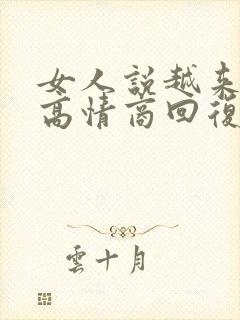 女人說越来
高情商回復
雲十月